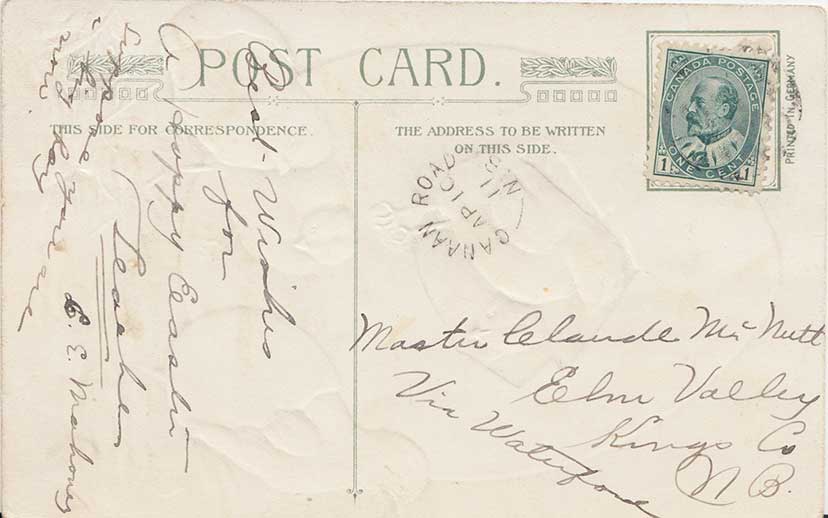 POST CARD.
THIS SIDE FOR CORRESPONDENCE.
THE ADDRESS TO BE WRITTEN
ON THIS SIDE.
CANADA POSTAGE
ONE CENT
1 1
PRINTED IN GERMANY
CANAAN ROAD
AP 10
11
N.B
Best Wishes
for
A Happy Easter
Teacher
B. E. Mahoney
Suppose you are
a big boy
now.
Master Claude McNutt
Elm Valley
Kings Co
Via Waterford
N B.